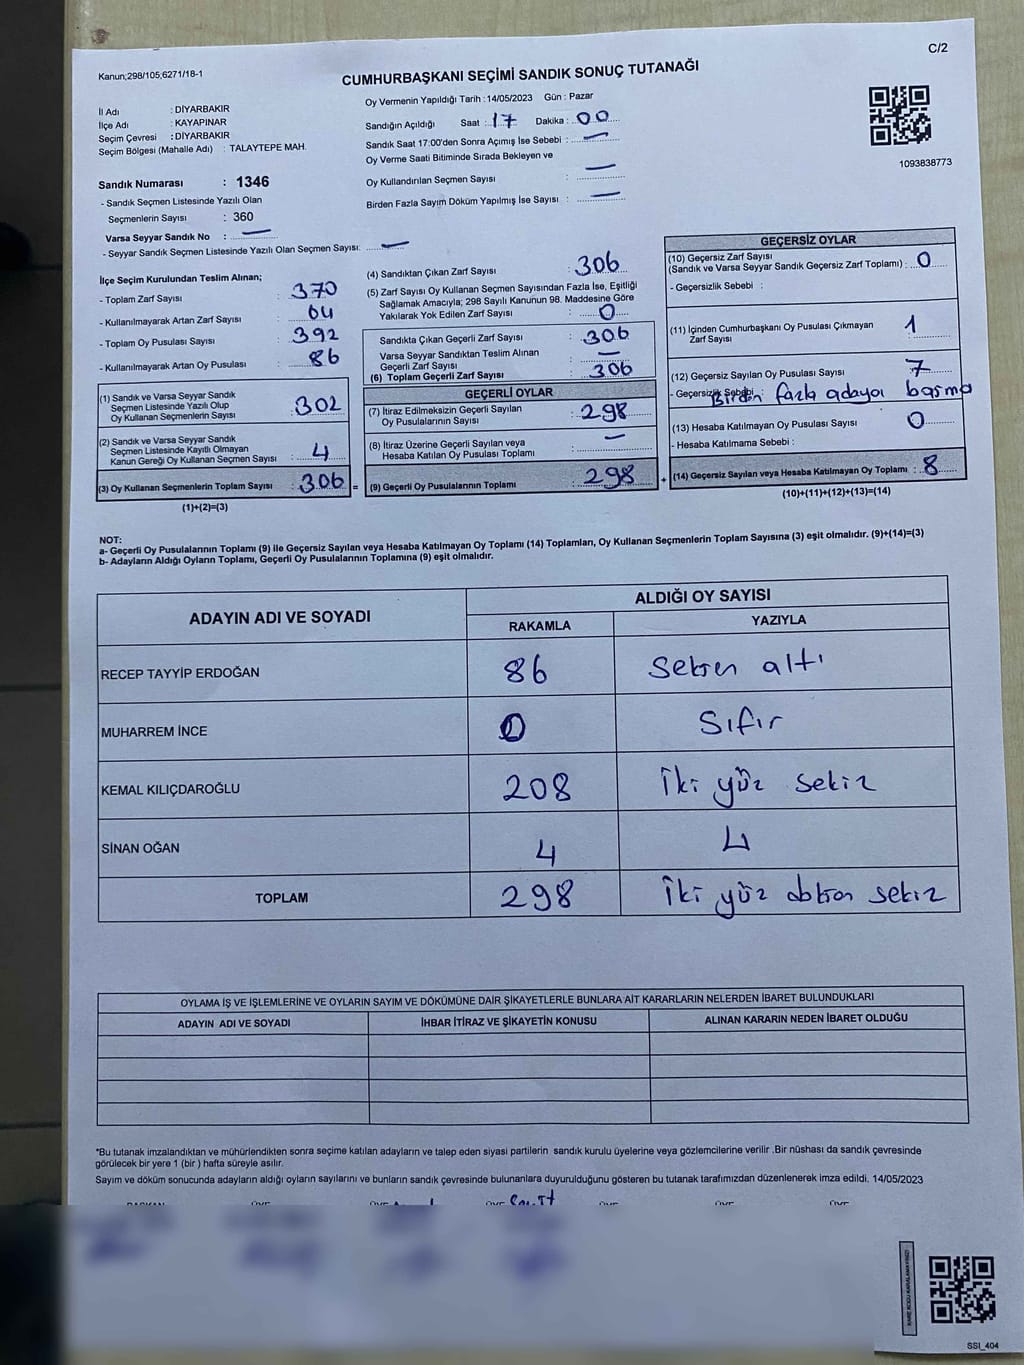 C/2
Kanun;298/105;6271/18-1
CUMHURBAŞKANI SEÇİMİ SANDIK SONUÇ TUTANAĞI
İl Adı : DİYARBAKIR
İlçe Adı : KAYAPINAR
Seçim Çevresi : DİYARBAKIR
Seçim Bölgesi (Mahalle Adı) : TALAYTEPE MAH.
Sandık Numarası : 1346
- Sandık Seçmen Listesinde Yazılı Olan
Seçmenlerin Sayısı : 360
Varsa Seyyar Sandık No : —
- Seyyar Sandık Seçmen Listesinde Yazılı Olan Seçmen Sayısı: —
Oy Vermenin Yapıldığı Tarih : 14/05/2023 Gün : Pazar
Sandığın Açıldığı Saat : 17 Dakika : 00
Sandık Saat 17:00'den Sonra Açımış İse Sebebi : —
Oy Verme Saati Bitiminde Sırada Bekleyen ve
Oy Kullandırılan Seçmen Sayısı : —
Birden Fazla Sayım Döküm Yapılmış İse Sayısı : —
1093838773
İlçe Seçim Kurulundan Teslim Alınan;
- Toplam Zarf Sayısı : 370
- Kullanılmayarak Artan Zarf Sayısı : 64
- Toplam Oy Pusulası Sayısı : 392
- Kullanılmayarak Artan Oy Pusulası : 86
(1) Sandık ve Varsa Seyyar Sandık
Seçmen Listesinde Yazılı Olup
Oy Kullanan Seçmenlerin Sayısı : 302
(2) Sandık ve Varsa Seyyar Sandık
Seçmen Listesinde Kayıtlı Olmayan
Kanun Gereği Oy Kullanan Seçmen Sayısı : 4
(3) Oy Kullanan Seçmenlerin Toplam Sayısı : 306 =
(1)+(2)=(3)
(4) Sandıktan Çıkan Zarf Sayısı : 306
(5) Zarf Sayısı Oy Kullanan Seçmen Sayısından Fazla İse, Eşitliği
Sağlamak Amacıyla; 298 Sayılı Kanunun 98. Maddesine Göre
Yakılarak Yok Edilen Zarf Sayısı : 0
Sandıkta Çıkan Geçerli Zarf Sayısı : 306
Varsa Seyyar Sandıktan Teslim Alınan
Geçerli Zarf Sayısı : —
(6) Toplam Geçerli Zarf Sayısı : 306
GEÇERLİ OYLAR
(7) İtiraz Edilmeksizin Geçerli Sayılan
Oy Pusulalarının Sayısı : 298
(8) İtiraz Üzerine Geçerli Sayılan veya
Hesaba Katılan Oy Pusulası Toplamı : —
(9) Geçerli Oy Pusulalarının Toplamı : 298 +
GEÇERSİZ OYLAR
(10) Geçersiz Zarf Sayısı
(Sandık ve Varsa Seyyar Sandık Geçersiz Zarf Toplamı) : 0
- Geçersizlik Sebebi :
(11) İçinden Cumhurbaşkanı Oy Pusulası Çıkmayan
Zarf Sayısı : 1
(12) Geçersiz Sayılan Oy Pusulası Sayısı : 7
- Geçersizlik Sebebi : Birden fazla adaya basma
(13) Hesaba Katılmayan Oy Pusulası Sayısı : 0
- Hesaba Katılmama Sebebi :
(14) Geçersiz Sayılan veya Hesaba Katılmayan Oy Toplamı : 8
(10)+(11)+(12)+(13)=(14)
NOT:
a- Geçerli Oy Pusulalarının Toplamı (9) ile Geçersiz Sayılan veya Hesaba Katılmayan Oy Toplamı (14) Toplamları, Oy Kullanan Seçmenlerin Toplam Sayısına (3) eşit olmalıdır. (9)+(14)=(3)
b- Adayların Aldığı Oyların Toplamı, Geçerli Oy Pusulalarının Toplamına (9) eşit olmalıdır.
ADAYIN ADI VE SOYADI ALDIĞI OY SAYISI
RAKAMLA YAZIYLA
RECEP TAYYİP ERDOĞAN 86 Seksen altı
MUHARREM İNCE 0 Sıfır
KEMAL KILIÇDAROĞLU 208 İki yüz sekiz
SİNAN OĞAN 4 4
TOPLAM 298 İki yüz doksan sekiz
OYLAMA İŞ VE İŞLEMLERİNE VE OYLARIN SAYIM VE DÖKÜMÜNE DAİR ŞİKAYETLERLE BUNLARA AİT KARARLARIN NELERDEN İBARET BULUNDUKLARI
ADAYIN ADI VE SOYADI İHBAR İTİRAZ VE ŞİKAYETİN KONUSU ALINAN KARARIN NEDEN İBARET OLDUĞU
*Bu tutanak imzalandıktan ve mühürlendikten sonra seçime katılan adayların ve talep eden siyasi partilerin sandık kurulu üyelerine veya gözlemcilerine verilir .Bir nüshası da sandık çevresinde
görülecek bir yere 1 (bir ) hafta süreyle asılır.
Sayım ve döküm sonucunda adayların aldığı oyların sayılarını ve bunların sandık çevresinde bulunanlara duyurulduğunu gösteren bu tutanak tarafımızdan düzenlenerek imza edildi. 14/05/2023
SSI_404